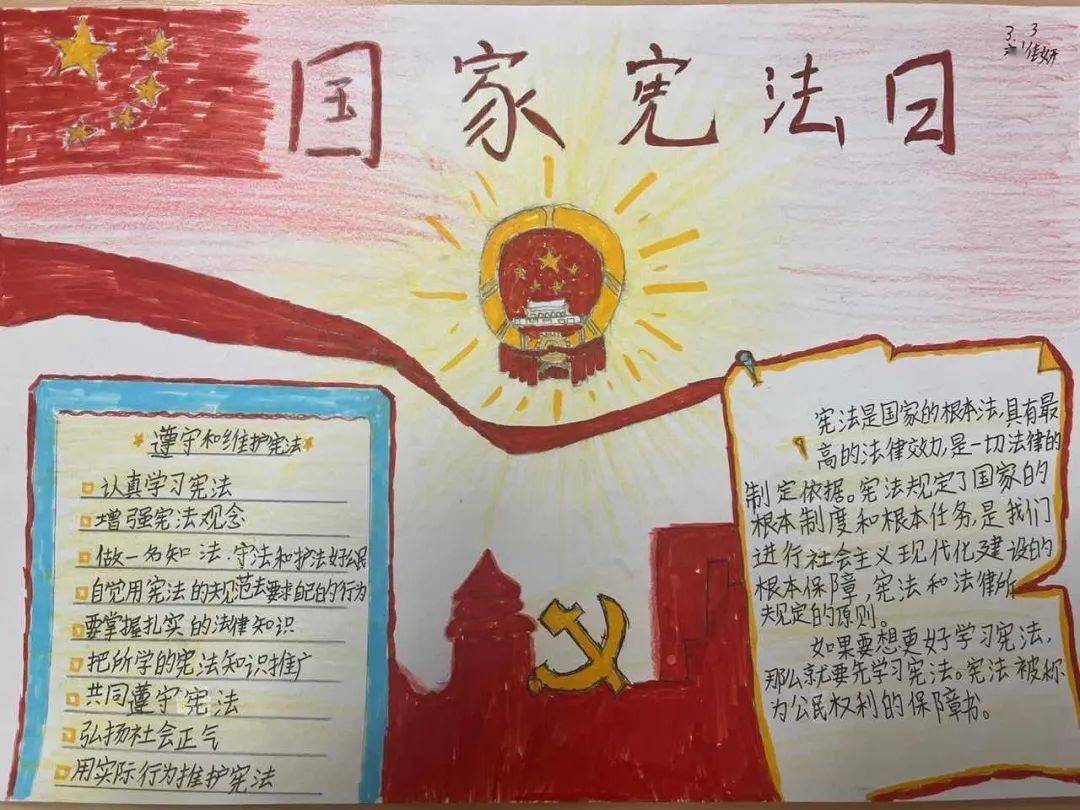 国家宪法日
3.3
佳妍
遵守和维护宪法
认真学习宪法
增强宪法观念
做一名知法、守法和护法好公民
自觉用宪法的规范去要求自己的行为
要掌握扎实的法律知识
把所学的宪法知识推广
共同遵守宪法
弘扬社会正气
用实际行为推护宪法
宪法是国家的根本法,具有最
高的法律效力,是一切法律的
制定依据。宪法规定了国家的
根本制度和根本任务,是我们
进行社会主义现代化建设的
根本保障,宪法和法律所
规定的原则。
如果要想更好学习宪法,
那么就要先学习宪法。宪法被称
为公民权利的保障书。